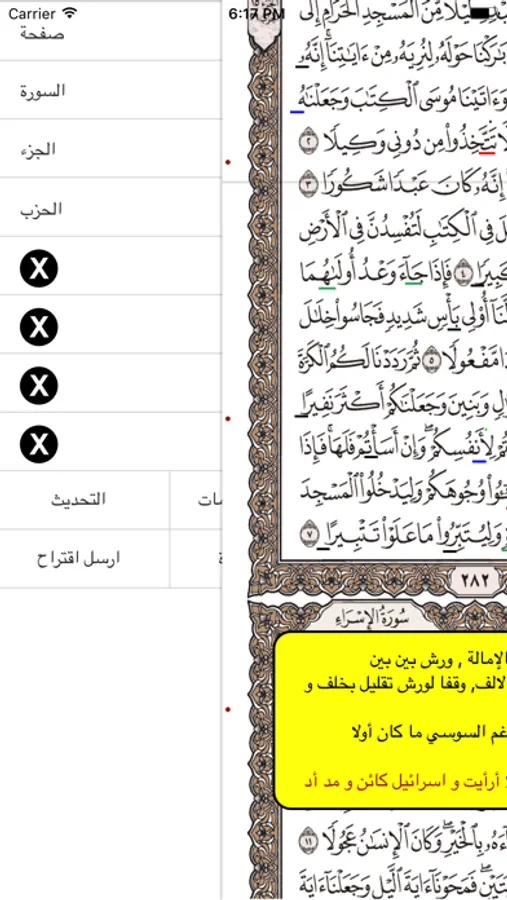 Carrier 6:17 PM
صفحة
السورة
الجزء
الحزب
X
X
X
X
التحديث
مات
ارسل اقتراح
ة
لًا مِّنَ ٱلْمَسْجِدِ ٱلْحَرَامِ إِلَى
بَٰرَكْنَا حَوْلَهُۥ لِنُرِيَهُۥ مِنْ ءَايَٰتِنَآ إِنَّهُۥ
وَءَاتَيْنَا مُوسَى ٱلْكِتَٰبَ وَجَعَلْنَٰهُ
لَّا تَتَّخِذُوا۟ مِن دُونِى وَكِيلًا ٢
إِنَّهُۥ كَانَ عَبْدًا شَكُورًا ٣
لَ فِى ٱلْكِتَٰبِ لَتُفْسِدُنَّ فِى ٱلْأَرْضِ
كَبِيرًا ٤ فَإِذَا جَآءَ وَعْدُ أُولَىٰهُمَا
لَّنَآ أُو۟لِى بَأْسٍ شَدِيدٍ فَجَاسُوا۟ خِلَٰلَ
دًا مَّفْعُولًا ٥ ثُمَّ رَدَدْنَا لَكُمُ ٱلْكَرَّةَ
لٍ وَبَنِينَ وَجَعَلْنَٰكُمْ أَكْثَرَ نَفِيرًا
تُمْ لِأَنفُسِكُمْ وَإِنْ أَسَأْتُمْ فَلَهَا فَإِذَا
ـُٔوا۟ وُجُوهَكُمْ وَلِيَدْخُلُوا۟ ٱلْمَسْجِدَ
وَلِيُتَبِّرُوا۟ مَا عَلَوْا۟ تَتْبِيرًا ٧
٢٨٢
سُورَةُ الإِسْرَاءِ
الإمالة , ورش بين بين
الالف, وقفا لورش تقليل بخلف و
غم السوسي ما كان أولا
أرأيت و اسرائيل كائن و مد أد
ءَهُۥ بِٱلْخَيْرِ وَكَانَ ٱلْإِنسَٰنُ عَجُولًا ١١
تَيْنِ فَمَحَوْنَآ ءَايَةَ ٱلَّيْلِ وَجَعَلْنَآ ءَايَةَ